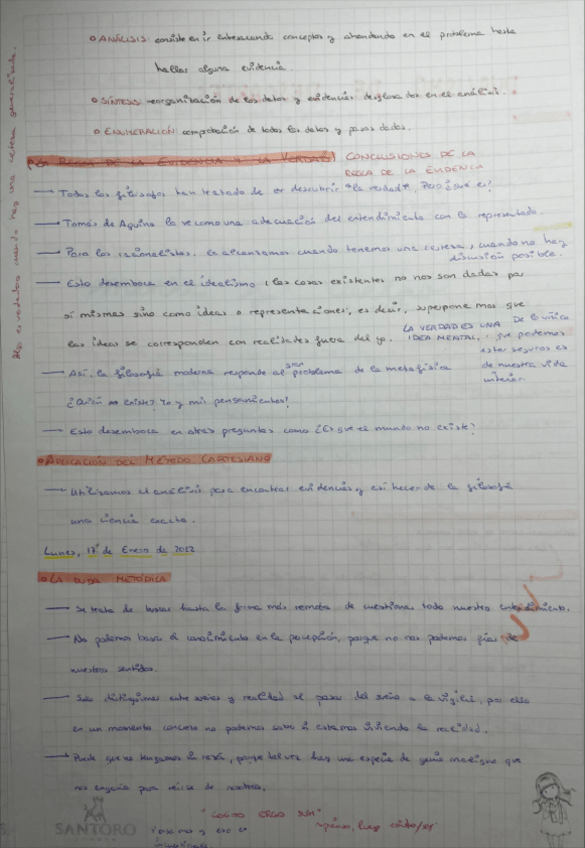 o ANÁLISIS: consiste en ir entresacando conceptos y ahondando en el problema hasta
hallar alguna evidencia.
o SÍNTESIS: reorganización de los datos y evidencias desglosados en el análisis.
o ENUMERACIÓN: comprobación de todos los datos y pasos dados.
CONCLUSIONES DE LA
REGLA DE LA EVIDENCIA
— Todos los filósofos han tratado de descubrir "la verdad". Pero ¿qué es?
— Tomás de Aquino la ve como una adecuación del entendimiento con lo representado.
— Para los racionalistas, la alcanzamos cuando tenemos una certeza, cuando no hay
discusión posible.
— Esto desemboca en el idealismo (las cosas existentes no nos son dadas por
sí mismas sino como ideas o representaciones), es decir, supone mas que
las ideas se corresponden con realidades fuera del yo.
LA VERDAD ES UNA IDEA MENTAL,
De lo único que podemos
estar seguros es
de nuestra vida
interior.
— Así, la filosofía moderna responde al problema de la metafísica
¿Quién existe? Yo y mis pensamientos!
— Esto desemboca en otras preguntas como ¿Es que el mundo no existe?
o APLICACIÓN DEL MÉTODO CARTESIANO
— Utilizamos el análisis para encontrar evidencias y así hacer de la filosofía
una ciencia exacta.
Lunes, 17 de Enero de 2022
o LA DUDA METÓDICA
— Se trata de buscar hasta la forma más remota de cuestionar todo nuestro
— No podemos basar el conocimiento en la percepción, porque no nos podemos fiar de
nuestros sentidos.
— Solo distinguimos entre sueños y realidad al pasar del sueño a la vigilia, por ello
en un momento concreto no podemos saber si estamos viviendo la realidad.
— Puede que no tengamos la razón, porque tal vez hay una especie de genio maligno que
nos engaña para reírse de nosotros.
"COGITO ERGO SUM"
pienso, luego existo
SANTORO